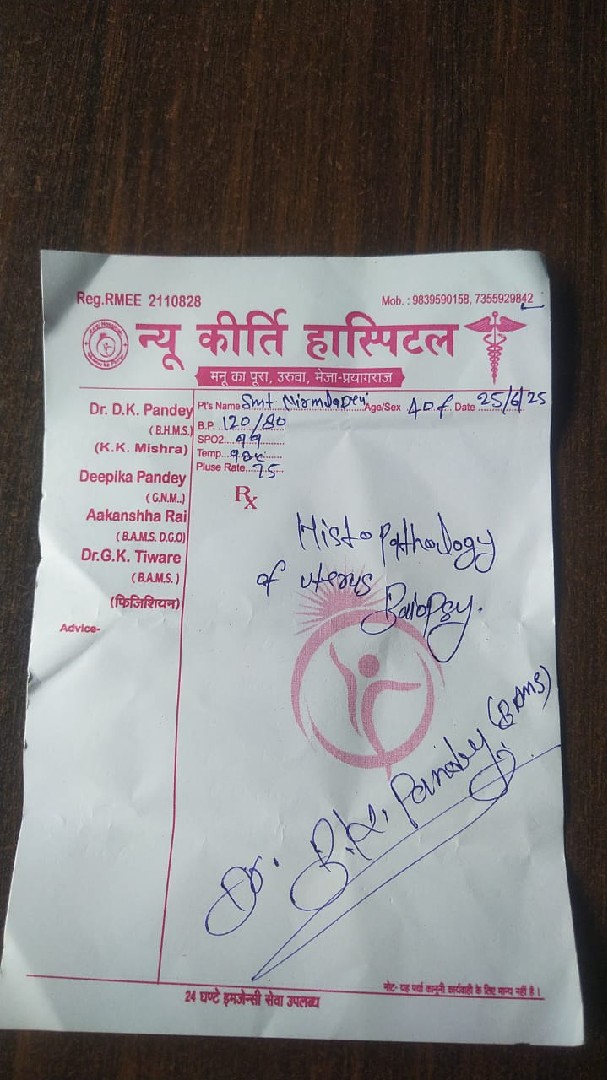 Reg.RMEE 2110828
Mob. : 9839590158, 7355929842
न्यू कीर्ति हास्पिटल
मनू का पूरा, उरुवा, मेजा-प्रयागराज
Dr. D.K. Pandey
(B.H.M.S.)
(K.K. Mishra)
Deepika Pandey
(G.N.M..)
Aakanshha Rai
(B.A.M.S. D.G.O)
Dr.G.K. Tiware
(B.A.M.S.)
(फिजिशियन)
Advice-
Pt's Name Smt Age/Sex 40 f Date 25/6/25
B.P. 120/80
SPO2 99
Temp.
Pluse Rate 75
Rx
Histopathology
of uterus
Baiopsy.
Dr. Pandey (BAMS)
24 घण्टे इमजेन्सी सेवा उपलब्ध
नोट- यह पर्चा कानूनी कार्यवाही के लिए मान्य नहीं है।